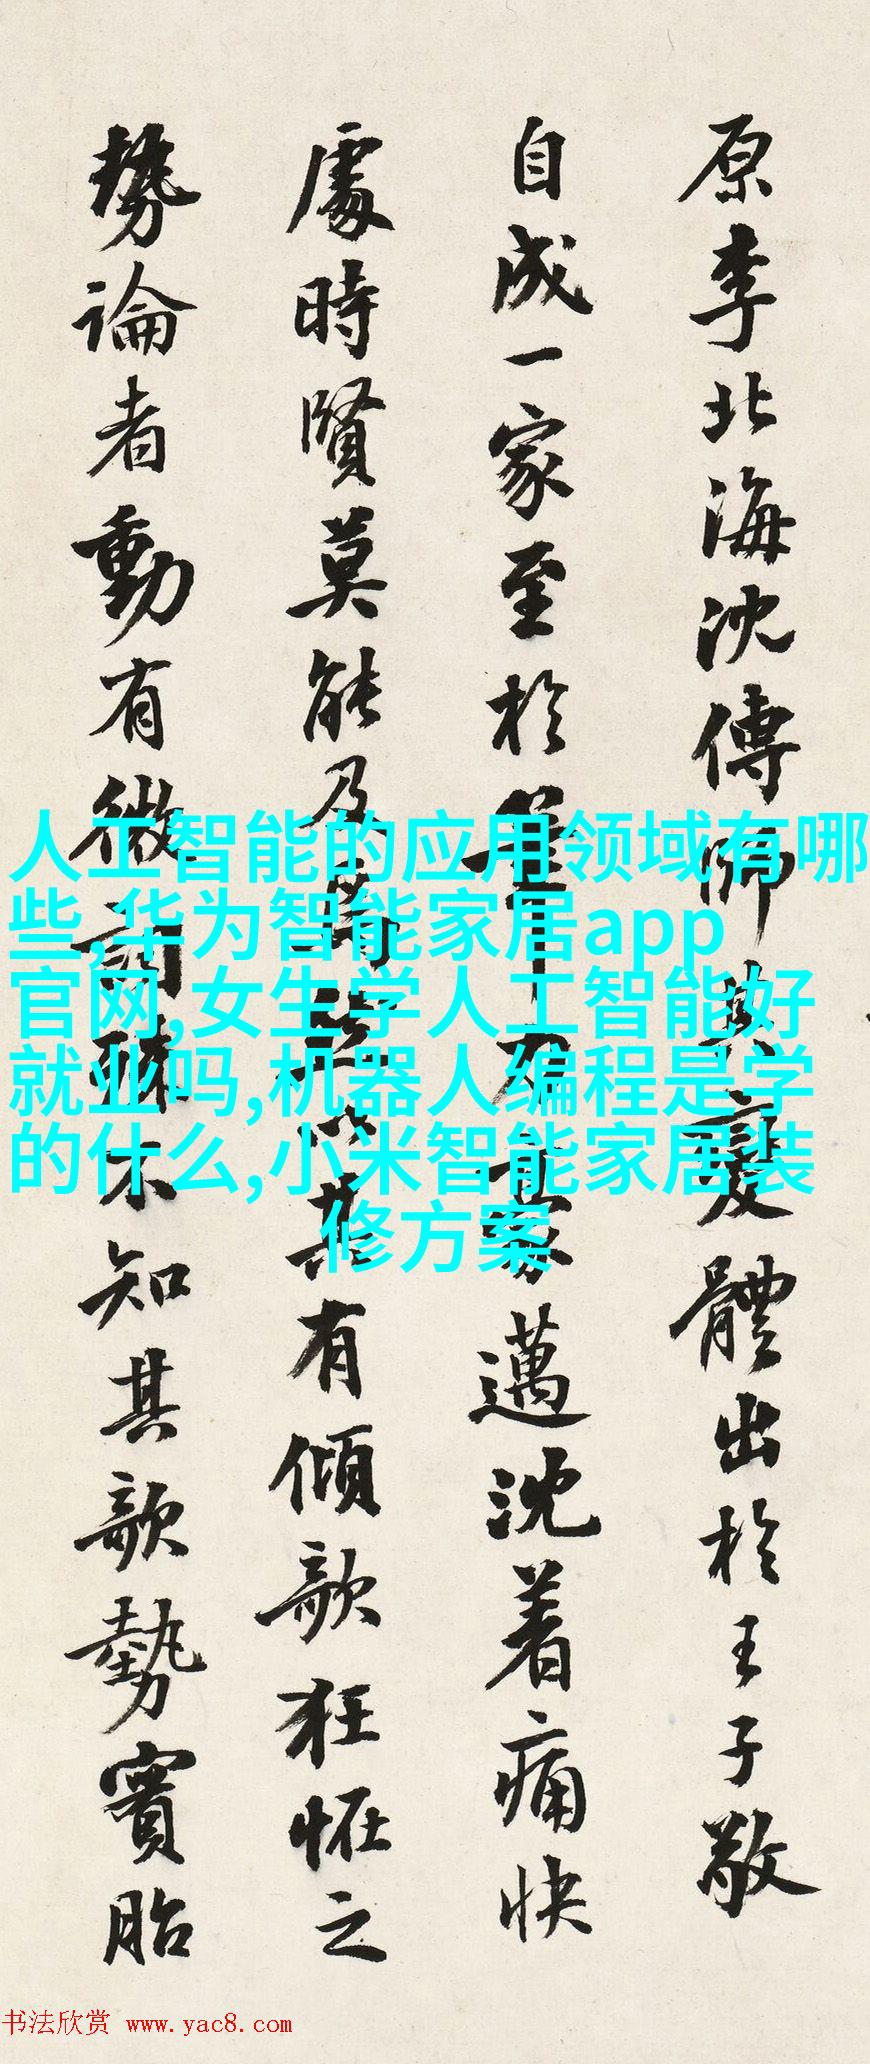 原李北海沈傳師變體出於王子敬
自成一家至於筆豪邁沈着痛快
處時賢莫能及以其有傾欹狂怪之
勢論者動有微詞殊不知其欹勢實胎
人工智能的应用领域有哪
些,华为智能家居app
官网,女生学人工智能好
就业吗,机器人编程是学
的什么,小米智能家居装
修方案
书法欣赏 www.yac8.com